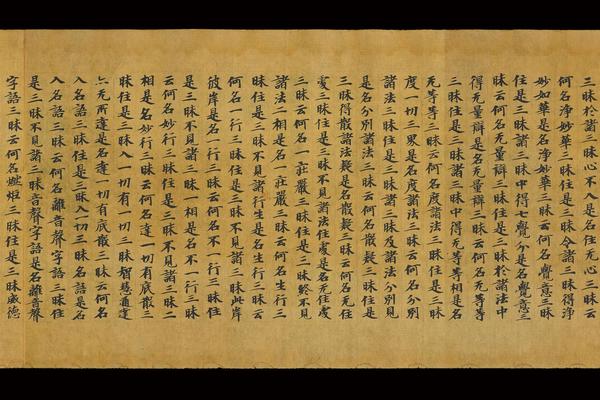 三昧於諸三昧心不入是名住无心三昧云
何名淨妙華三昧住是三昧令諸三昧得淨
妙如華是名淨妙華三昧云何名覺意三昧
住是三昧諸三昧中得七覺分是名覺意三
昧云何名无量辯三昧住是三昧於諸法中
得无量辯是名无量辯三昧云何名无等等
三昧住是三昧諸三昧中得无等等相是名
无等等三昧云何名度諸法三昧住是三昧
度一切三界是名度諸法三昧云何名分別
諸法三昧住是三昧諸三昧及諸法分別見
是名分別諸法三昧云何名散疑三昧住是
三昧得散諸法疑是名散疑三昧云何名无住
處三昧住是三昧不見諸法住處是名无住處
三昧云何名一莊嚴三昧住是三昧終不見
諸法二相是名一莊嚴三昧云何名生行三
昧住是三昧不見諸行生是名生行三昧云
何名一行三昧住是三昧不見諸三昧此岸
彼岸是名一行三昧云何名不一行三昧住
是三昧不見諸三昧一相是名不一行三昧
云何名妙行三昧住是三昧不見諸三昧二
相是名妙行三昧云何名達一切有底散三
昧住是三昧入一切有一切三昧智慧通達
亦无所達是名達一切有底散三昧云何名
入名語三昧住是三昧入一切三昧名語是名
入名語三昧云何名離音聲字語三昧住
是三昧不見諸三昧音聲字語是名離音聲
字語三昧云何名燃炬三昧住是三昧威德